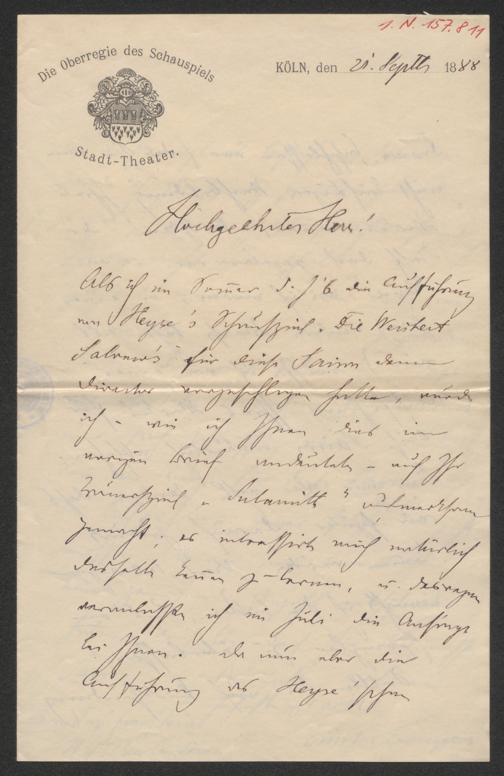 1. N. 157.811
Die Oberregie des Schauspiels
Stadt-Theater.
KÖLN, den 21. Septbr 1888
Hochgeehrter Herr!
Als ich im Sommer d. J's die Aufführung
von Heyse's Schauspiel „Die Weisheit
Salomo's" für diese Saison dem
Director vorgeschlagen hatte, wurde
ich – wie ich Ihnen dies im
vorigen Brief andeutete – auf Ihr
Trauerspiel „Sulamith" aufmerksam
gemacht; es interessirte mich natürlich
dasselbe kennen zu lernen, u. deswegen
veranlaßte ich im Juli die Anfrage
bei Ihnen. Da nun aber die
Aufführung des Heyse'schen